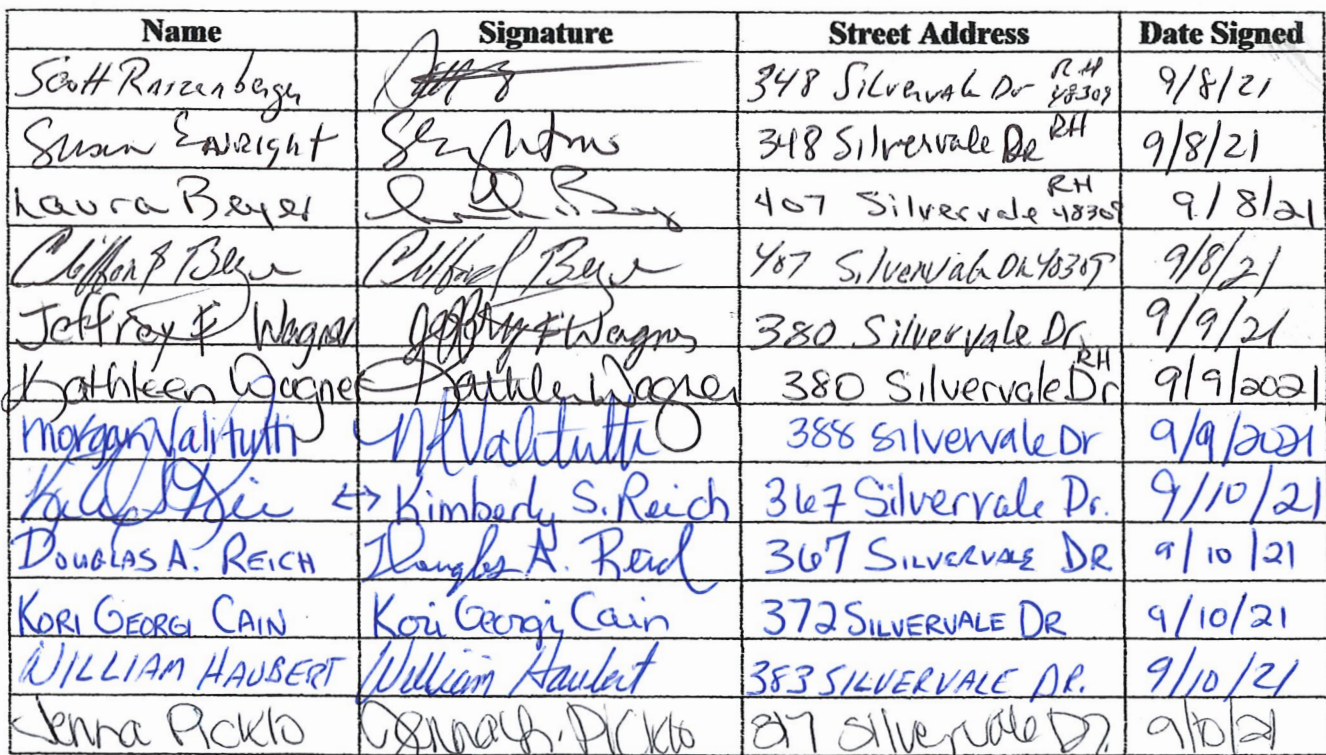 Name Signature Street Address Date Signed
Scott 348 Silvervale Dr RH 48309 9/8/21
Susan Enright 348 Silvervale Dr RH 9/8/21
Laura Beyer 407 Silvervale RH 48309 9/8/21
Beyer Beyer Silvervale Dr 48309 9/8/21
Jeffrey F Wagner Jeffrey F Wagner 380 Silvervale Dr 9/9/21
Kathleen Wagner Kathleen Wagner 380 Silvervale Dr RH 9/9/2021
Morgan Valitutti M Valitutti 388 Silvervale Dr 9/9/2021
↔ Kimberly S. Reich 367 Silvervale Dr. 9/10/21
DOUGLAS A. REICH Douglas A. Reich 367 SILVERVALE DR 9/10/21
KORI GEORGI CAIN Kori Georgi Cain 372 SILVERVALE DR 9/10/21
WILLIAM HAUBERT William Haubert 383 SILVERVALE DR. 9/10/21
Jenna Pickto Silvervale Dr. 9/10/21